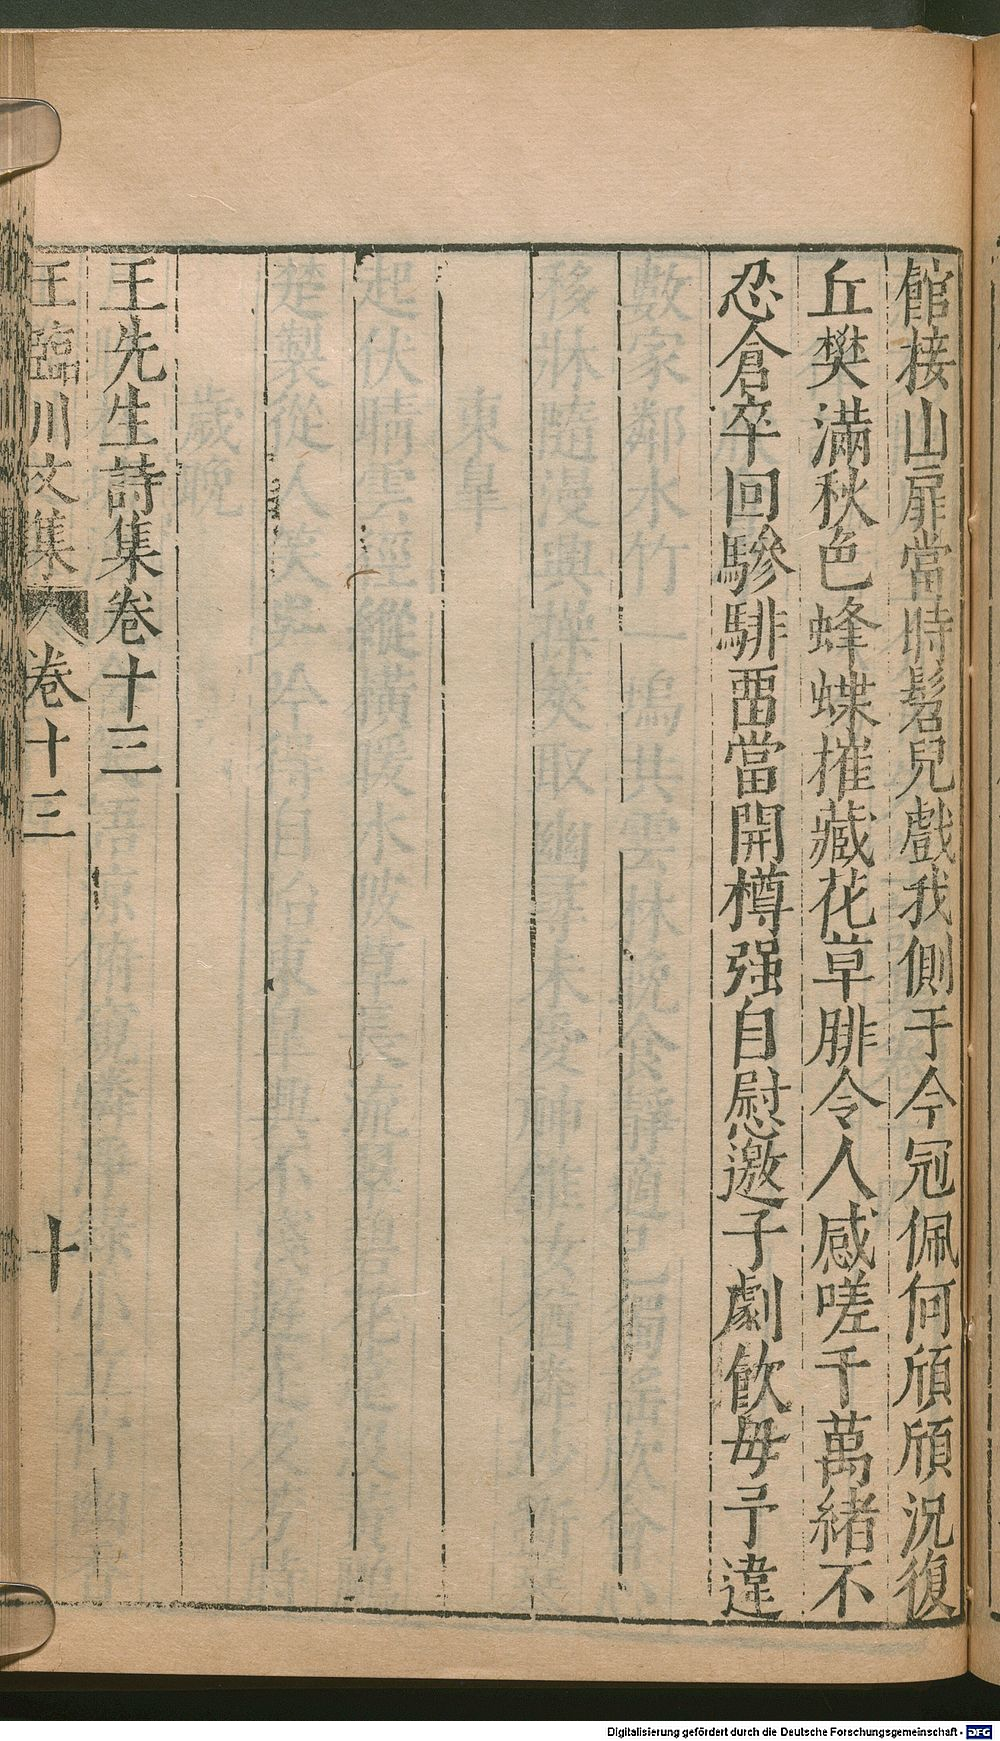 館接山扉當時髫兒戲我側于今冠佩何頎頎況復
丘樊滿秋色蜂蝶摧藏花草腓令人感嗟千萬緒不
忍倉卒回驂騑畱當開樽强自慰邀子劇飲毋予違
王先生詩集卷十三
王臨川文集 卷十三 十
Digitalisierung gefördert durch die Deutsche Forschungsgemeinschaft - DFG